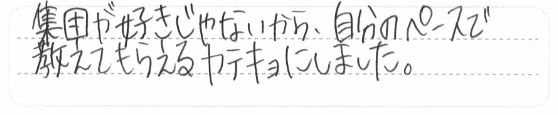 集団が好きじゃないから、自分のペースで
教えてもらえるカテキョにしました。